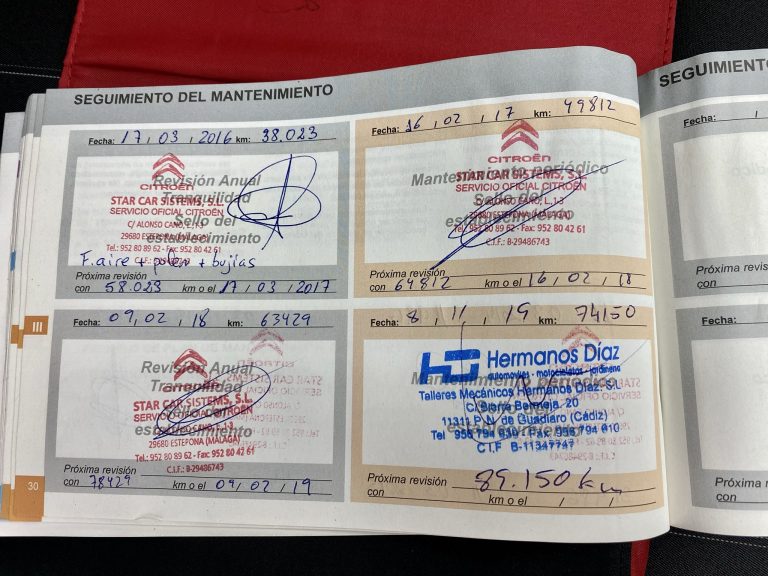 SEGUIMIENTO DEL MANTENIMIENTO
Fecha: 17, 03, 2016 km: 38.023
CITROËN
Revisión Anual
Tranquilidad
STAR CAR SISTEMS, S.L.
SERVICIO OFICIAL CITROËN
Sello del
C/ ALONSO CANO, L, 1-3
establecimiento
29680 ESTEPONA (MALAGA)
Tel.: 952 80 89 62 - Fax: 952 80 42 61
C.I.F.: B-29486743
F. aire + polen + bujías
Próxima revisión
con 58.023 km o el 17, 03, 2017
Fecha: 16, 02, 17 km: 49812
CITROËN
Mantenimiento periódico
STAR CAR SISTEMS, S.L.
SERVICIO OFICIAL CITROËN
Sello del
C/ ALONSO CANO, L, 1-3
establecimiento
29680 ESTEPONA (MALAGA)
Tel.: 952 80 89 62 - Fax: 952 80 42 61
C.I.F.: B-29486743
Próxima revisión
con 64812 km o el 16, 02, 18
Fecha: 09, 02, 18 km: 63429
Revisión Anual
Tranquilidad
STAR CAR SISTEMS, S.L.
SERVICIO OFICIAL CITROËN
C/ ALONSO CANO, L, 1-3
establecimiento
29680 ESTEPONA (MALAGA)
Tel.: 952 80 89 62 - Fax: 952 80 42 61
C.I.F.: B-29486743
Próxima revisión
con 78429 km o el 09, 02, 19
Fecha: 8, 11, 19 km: 74150
HD Hermanos Díaz
automoviles - motocicletas - jardineria
Mantenimiento periódico
Talleres Mecánicos Hermanos Díaz, S.L.
C/ Sierra Bermeja, 20
11311 P. N. de Guadiaro (Cádiz)
establecimiento
Tel 956 794 639 - Fax 956 794 610
C.I.F B-11347747
Próxima revisión 89.150 km
con km o el / /
III
30
SEGUIMIENTO
Fecha: /
Próxima revisión
con
Fecha: /
Próxima revisión
con